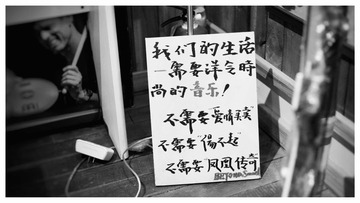 我们的生活
一需要洋气时
尚的音乐！
不需要“爱情买卖”
不需要“伤不起”
不需要“凤凰传奇”